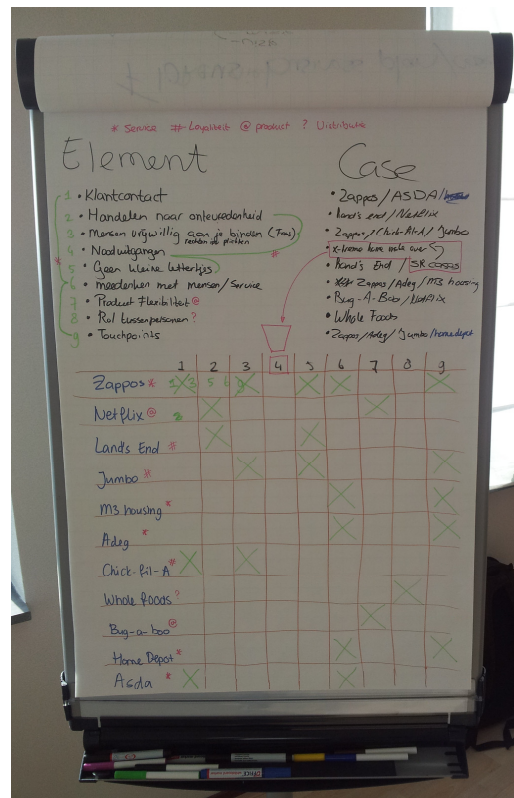 * Service # Loyaliteit @ product ? Distributie
Element
Case
1 • Klantcontact
2 • Handelen naar ontevredenheid
3 • Mensen vrijwillig aan je binden (Fans)
rechten als plichten
4 • Nooduitgangen #
* 5 • Geen kleine lettertjes
6 • meedenken met mensen/service
7 • Product Flexibiliteit @
8 • Rol tussenpersonen ?
9 • Touchpoints
• Zappos/ASDA/
• Land's end/Netflix
• Zappos/Chick-fil-A/Jumbo
over
• Land's End / SR cases
• Zappos/Adeg/M3 housing
• Bug-A-Boo/Netflix
• Whole Foods
• Zappos/Adeg/Jumbo/homedepot
1 2 3 4 5 6 7 8 9
Zappos * 1 X 3 5 6 9 X X X X
Netflix @ 8 X X
Land's End # X X
Jumbo # X X X
M3 housing * X X
Adeg * X X
Chick-fil-A * X X
Whole foods ? X
Bug-a-boo @ X
Home Depot * X X
Asda * X X